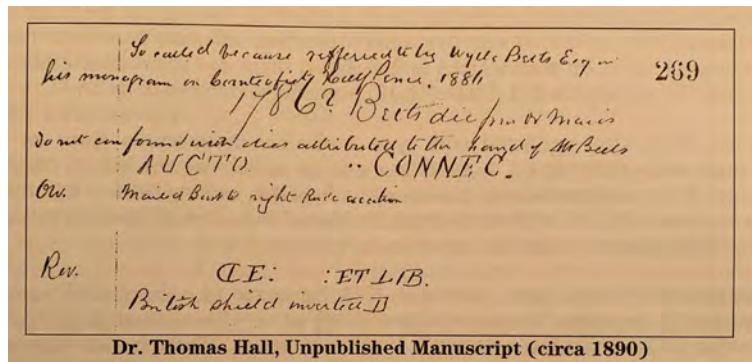 So called because refferred to by Wylly Betts Esq in
his monogram on Counterfeit Half Pence, 1886
269
1786? Betts die from Dr Maris
Do not confound with dies attributed to the hand of Mr Betts
AUCTO ·· CONNEC.
Ov. Mailed Bust to right Rude execution
Rev. CE: :ET LIB.
British shield inverted D
Dr. Thomas Hall, Unpublished Manuscript (circa 1890)